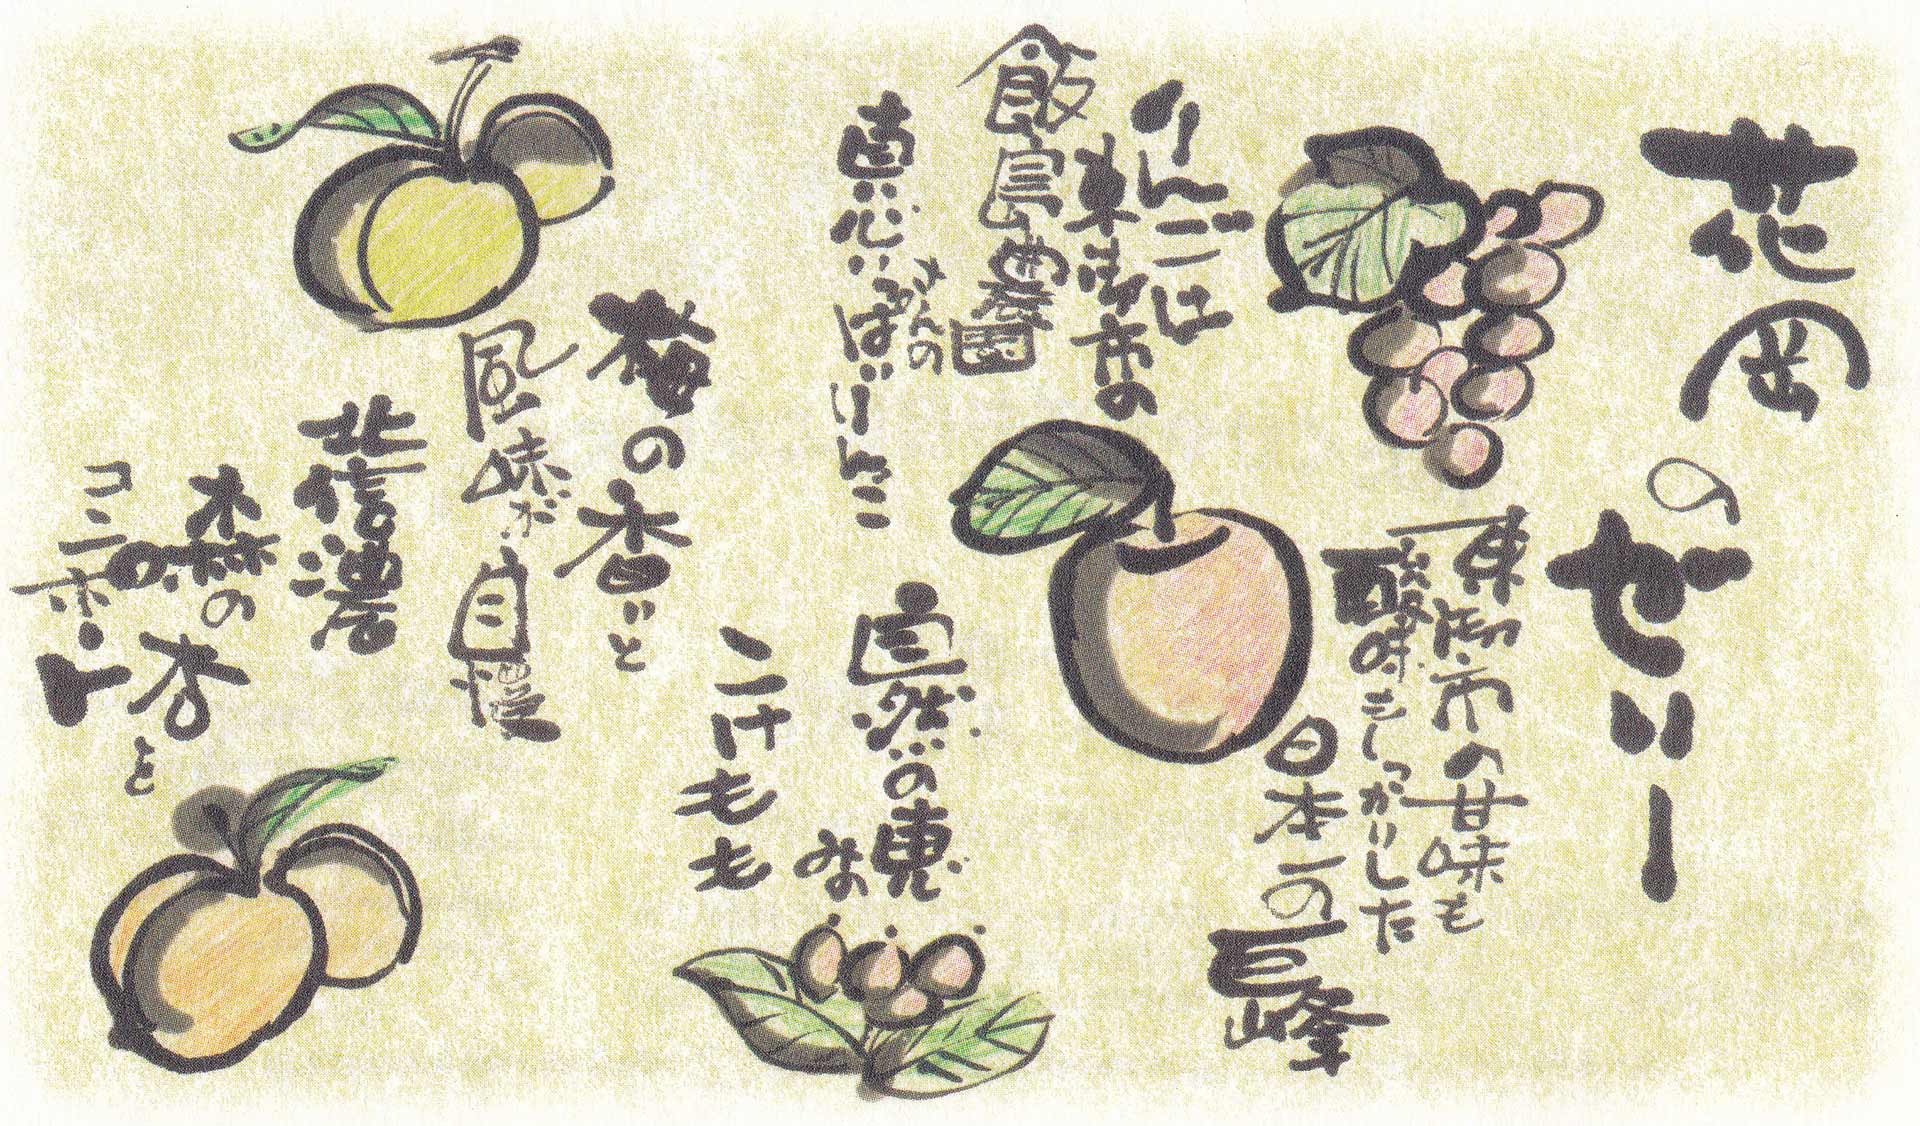 花岡のぜりー
東御市の甘味も
酸味もしっかりした
日本一の
巨峰
りんごは
東御市の
飯島農園
さんの
真心いっぱいりんご
自然の恵み
こけもも
梅の香りと
風味が自慢
北信濃
森の杏を
コンポート